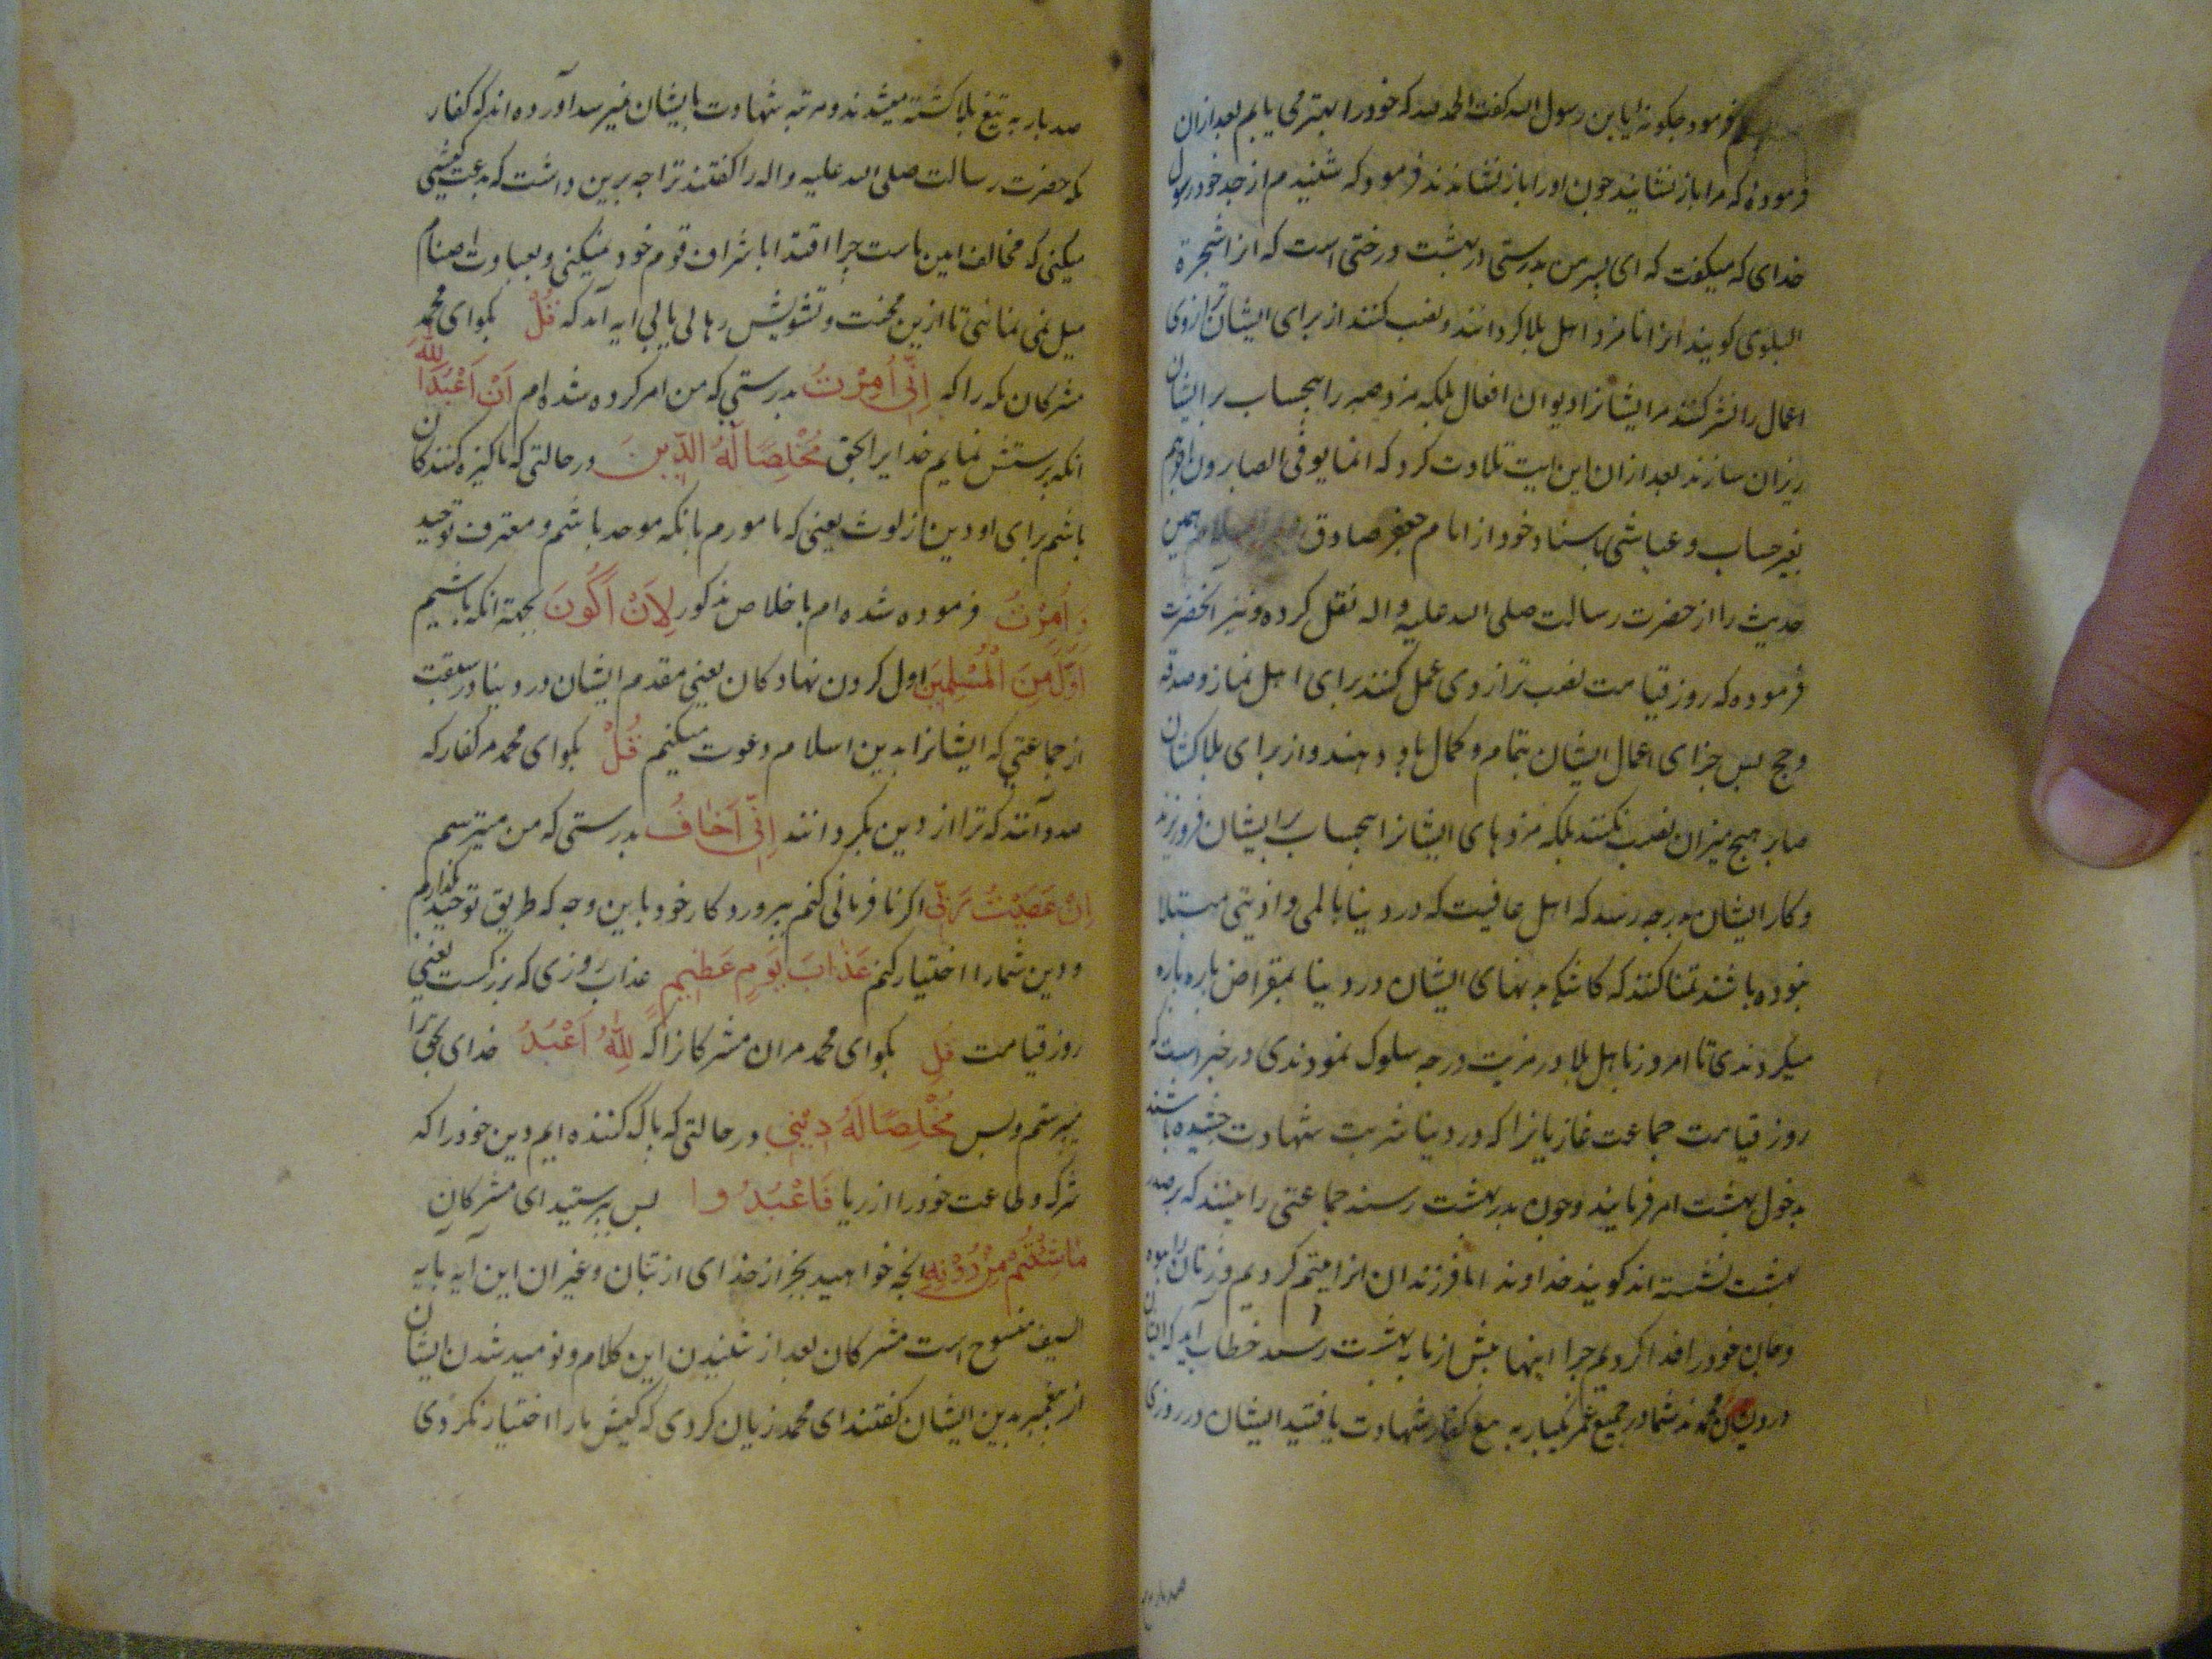 فرمود چكونه یابن رسول الله كفت الحمد لله كه خود را بهتر می یابم بعد ازان
فرموده كه مرا باز نشانید چون اورا باز نشاندند فرمود كه شنیدم از جد خود رسول
خدای كه میكفت كه ای پسر من بدرستی در بهشت درختی است كه انرا شجرة
البلوی كویند انرا نامزد اهل بلا كردانند و نصب كنند از برای ایشان ترازوی
اعمال را نشر كنند مر ایشانرا دیوان افعال بلكه مزد صبر را بیحساب بر ایشان
ریزان سازند بعد ازان این ایت تلاوت كرد كه انما یوفی الصابرون اجرهم
بغیر حساب و عیاشی باسناد خود از امام جعفر صادق همین
حدیث را از حضرت رسالت صلی الله علیه و اله نقل كرده و نیز انحضرت
فرموده كه روز قیامت نصب ترازوی عمل كنند برای اهل نماز و صدقه
و حج پس جزای اعمال ایشان بتمام و كمال باو دهند و از برای بلاكشان
صابر هیچ میزان نصب نكنند بلكه مزدهای ایشانرا بیحساب بر ایشان فرو ریزند
و كار ایشان بدرجه رسد كه اهل عافیت كه در دینا بالمی و اذیتی مبتلا
نبوده باشند تمنا كنند كه كاشكی بدنهای ایشان در دینا بمقراض پاره پاره
میكردندی تا امروز با اهل بلا در مزیت درجه سلوك نمودندی در خبر است كه
روز قیامت جماعت غازیانرا كه در دینا شربت شهادت چشیده باشند
بدخول بهشت امر فرمایند و چون بدر بهشت رسند جماعتی را بینند كه بر صدر
بهشت نشسته اند كویند خداوندا ما فرزندان انرا یتیم كردیم و زنان را بیوه
و جان خود را فدا كردیم چرا اینها پیش از ما به بهشت رسد خطاب آید كه ایشان
درویشان محمدند شما در جمیع عمر یكبار به تیغ كفار شهادت یافتید ایشان در روزی
صد بار به تیغ
صد بار به تیغ بلا كشته میشدند و مرتبه شهادت بایشان میرسد آورده اند كه كفار
مكه حضرت رسالت صلی الله علیه و اله را كفتند ترا چه برین داشت كه بدعت كیشی
میكنی كه مخالف دین ماست چرا اقتدا باشراف قوم خود نمیكنی و بعبادت اصنام
میل نمی نمائی تا ازین محنت و تشویش رهائی یابی ایه آمد كه قُلْ بكو ای محمد
مشركان مكه را كه اِنِّی اُمِرْتُ بدرستی كه من امر كرده شده ام اَنْ اَعْبُدَ اللّٰهَ
انكه پرستش نمایم خدایرا بحق مُخْلِصًا لَهُ الدّٖینَ در حالتی كه پاكیزه كنندكان
باشم برای او دین از لوث یعنی كه مامورم بانكه موحد باشم و معترف توحید
وَ اُمِرْتُ و فرموده شده ام باخلاص مذكور لِاَنْ اَكُونَ بجهة انكه باشیم
اَوَّلَ مِنَ الْمُسْلِمینَ اول كردن نهادكان یعنی مقدم ایشان در دینا در سبقت
از جماعتی كه ایشانرا بدین اسلام دعوت میكنیم قُلْ بكو ای محمد مر كفار كه
صدد آنند كه ترا از دین بكردانند اِنّٖی اَخَافُ بدرستی كه من میترسم
اِنْ عَصَیْتُ رَبّٖی اكر نافرمانی كنم بپروردكار خود باین وجه كه طریق توحید بكذارم
و دین شما را اختیار كنم عَذَابَ یَوْمٍ عَظٖیمٍ عذاب روزی كه بزركست یعنی
روز قیامت قُلِ بكو ای محمد مر ان مشركانرا كه اللّٰهَ اَعْبُدُ خدای بحق را
میپرستم و بس مُخْلِصًا لَهُ دٖینٖی در حالتی كه پاك كننده ایم دین خود را كه
شرك و طاعت خود را از ریا فَاعْبُدُوا پس بپرستید ای مشركان
مَاشِئْتُمْ مِنْ دُوْنِهٖ انچه خواهید بجز از خدای از بتان و غیر ان این آیه بایه
السیف منسوخ است مشركان بعد از شنیدن این كلام و نومید شدن ایشان
از پیغمبر بدین ایشان كفتند ای محمد زیان كردی كه كیش ما را اختیار نكردی